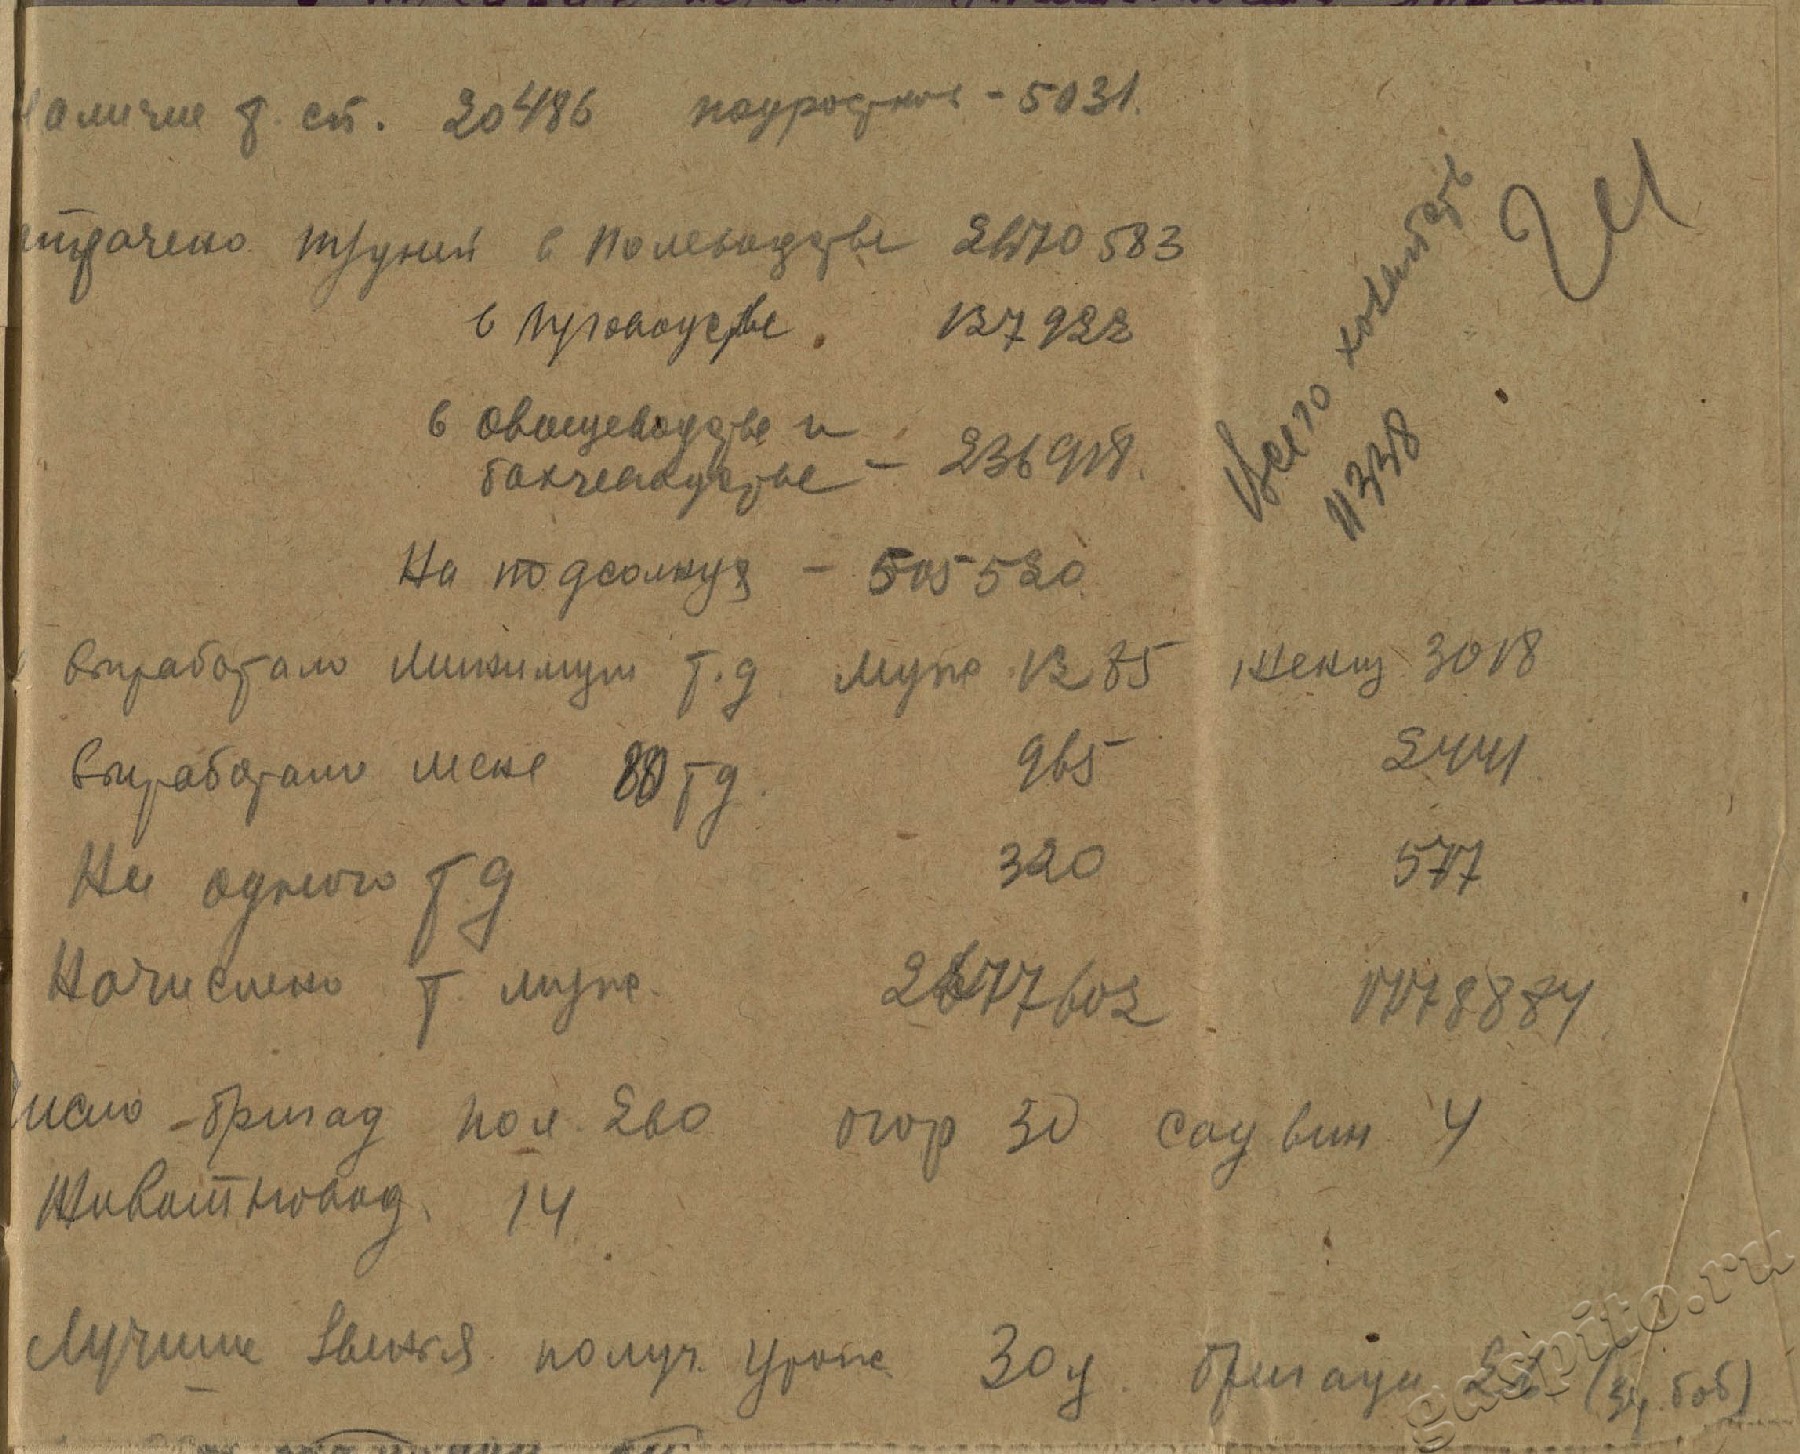 Наличие т. сп. 20486 подростков - 5031.
Затрачено трудней в полеводстве 2470583
в луговодстве. 127922
в овощеводстве и
бахчеводстве - 236918.
На подсолнуя - 505520
Выработало минимум т.д. муж 1285 женщ 3018
Выработало мене т д. 965 2441
Не одного т.д 320 577
Начислено т. муж.
Число - бригад пол. 260 огор 30 сад вин 4
Животновод. 14
Лучшие звенья получ. урож 30 ц. бригады (зер. боб)
Всего хозяйств
11338
gaspito.ru